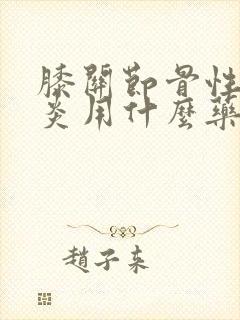 膝關節骨性
炎用什麼藥
趙子東